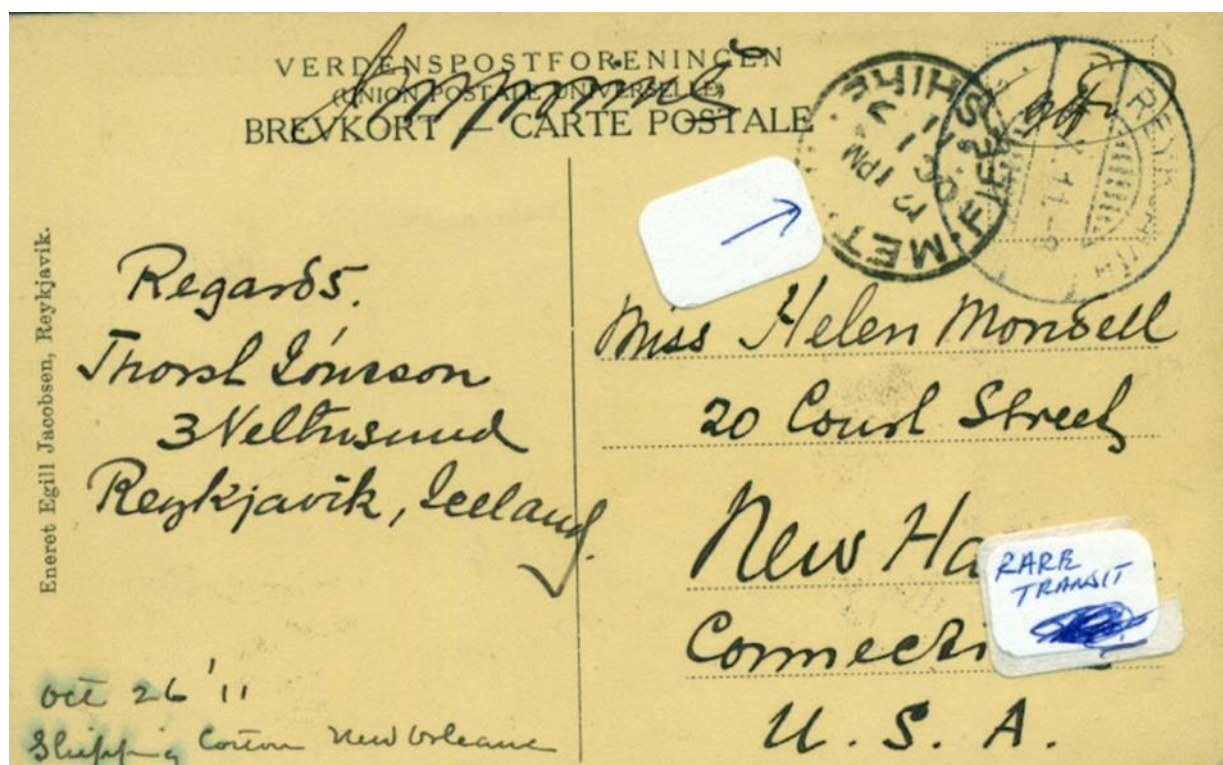 VERDENSPOSTFORENINGEN
(UNION POSTALE UNIVERSELLE)
BREVKORT – CARTE POSTALE
REYK
MET
FIFESHIRE
1 PM
Eneret Egill Jacobsen, Reykjavik.
Regards.
Thorst Jónsson
3 Veltusund
Reykjavik, Iceland.
Oct 26 '11
Shipping Cotton New Orleans
Miss Helen Mondell
20 Court Street
New Ha
Connecti
U. S. A.
RARE
TRANSIT